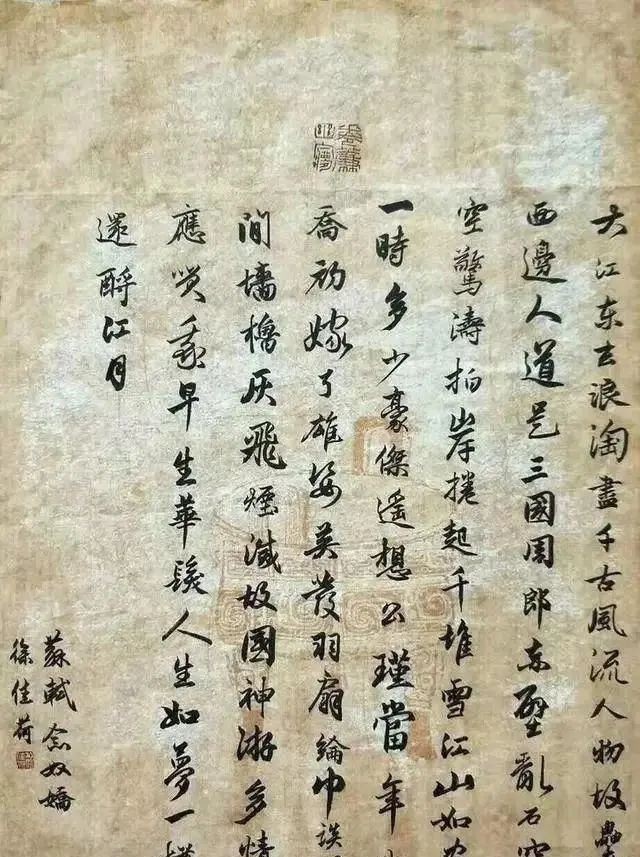 大江东去浪淘盡千古風流人物故壘
西邊人道是三國周郎赤壁亂石穿
空驚濤拍岸捲起千堆雪江山如
一時多少豪傑遥想公瑾當年
喬初嫁了雄姿英發羽扇綸巾談
間墻櫓灰飛煙滅故國神游多情
應笑我早生華髮人生如夢一樽
還酹江月
蘇軾念奴嬌
徐佳荷